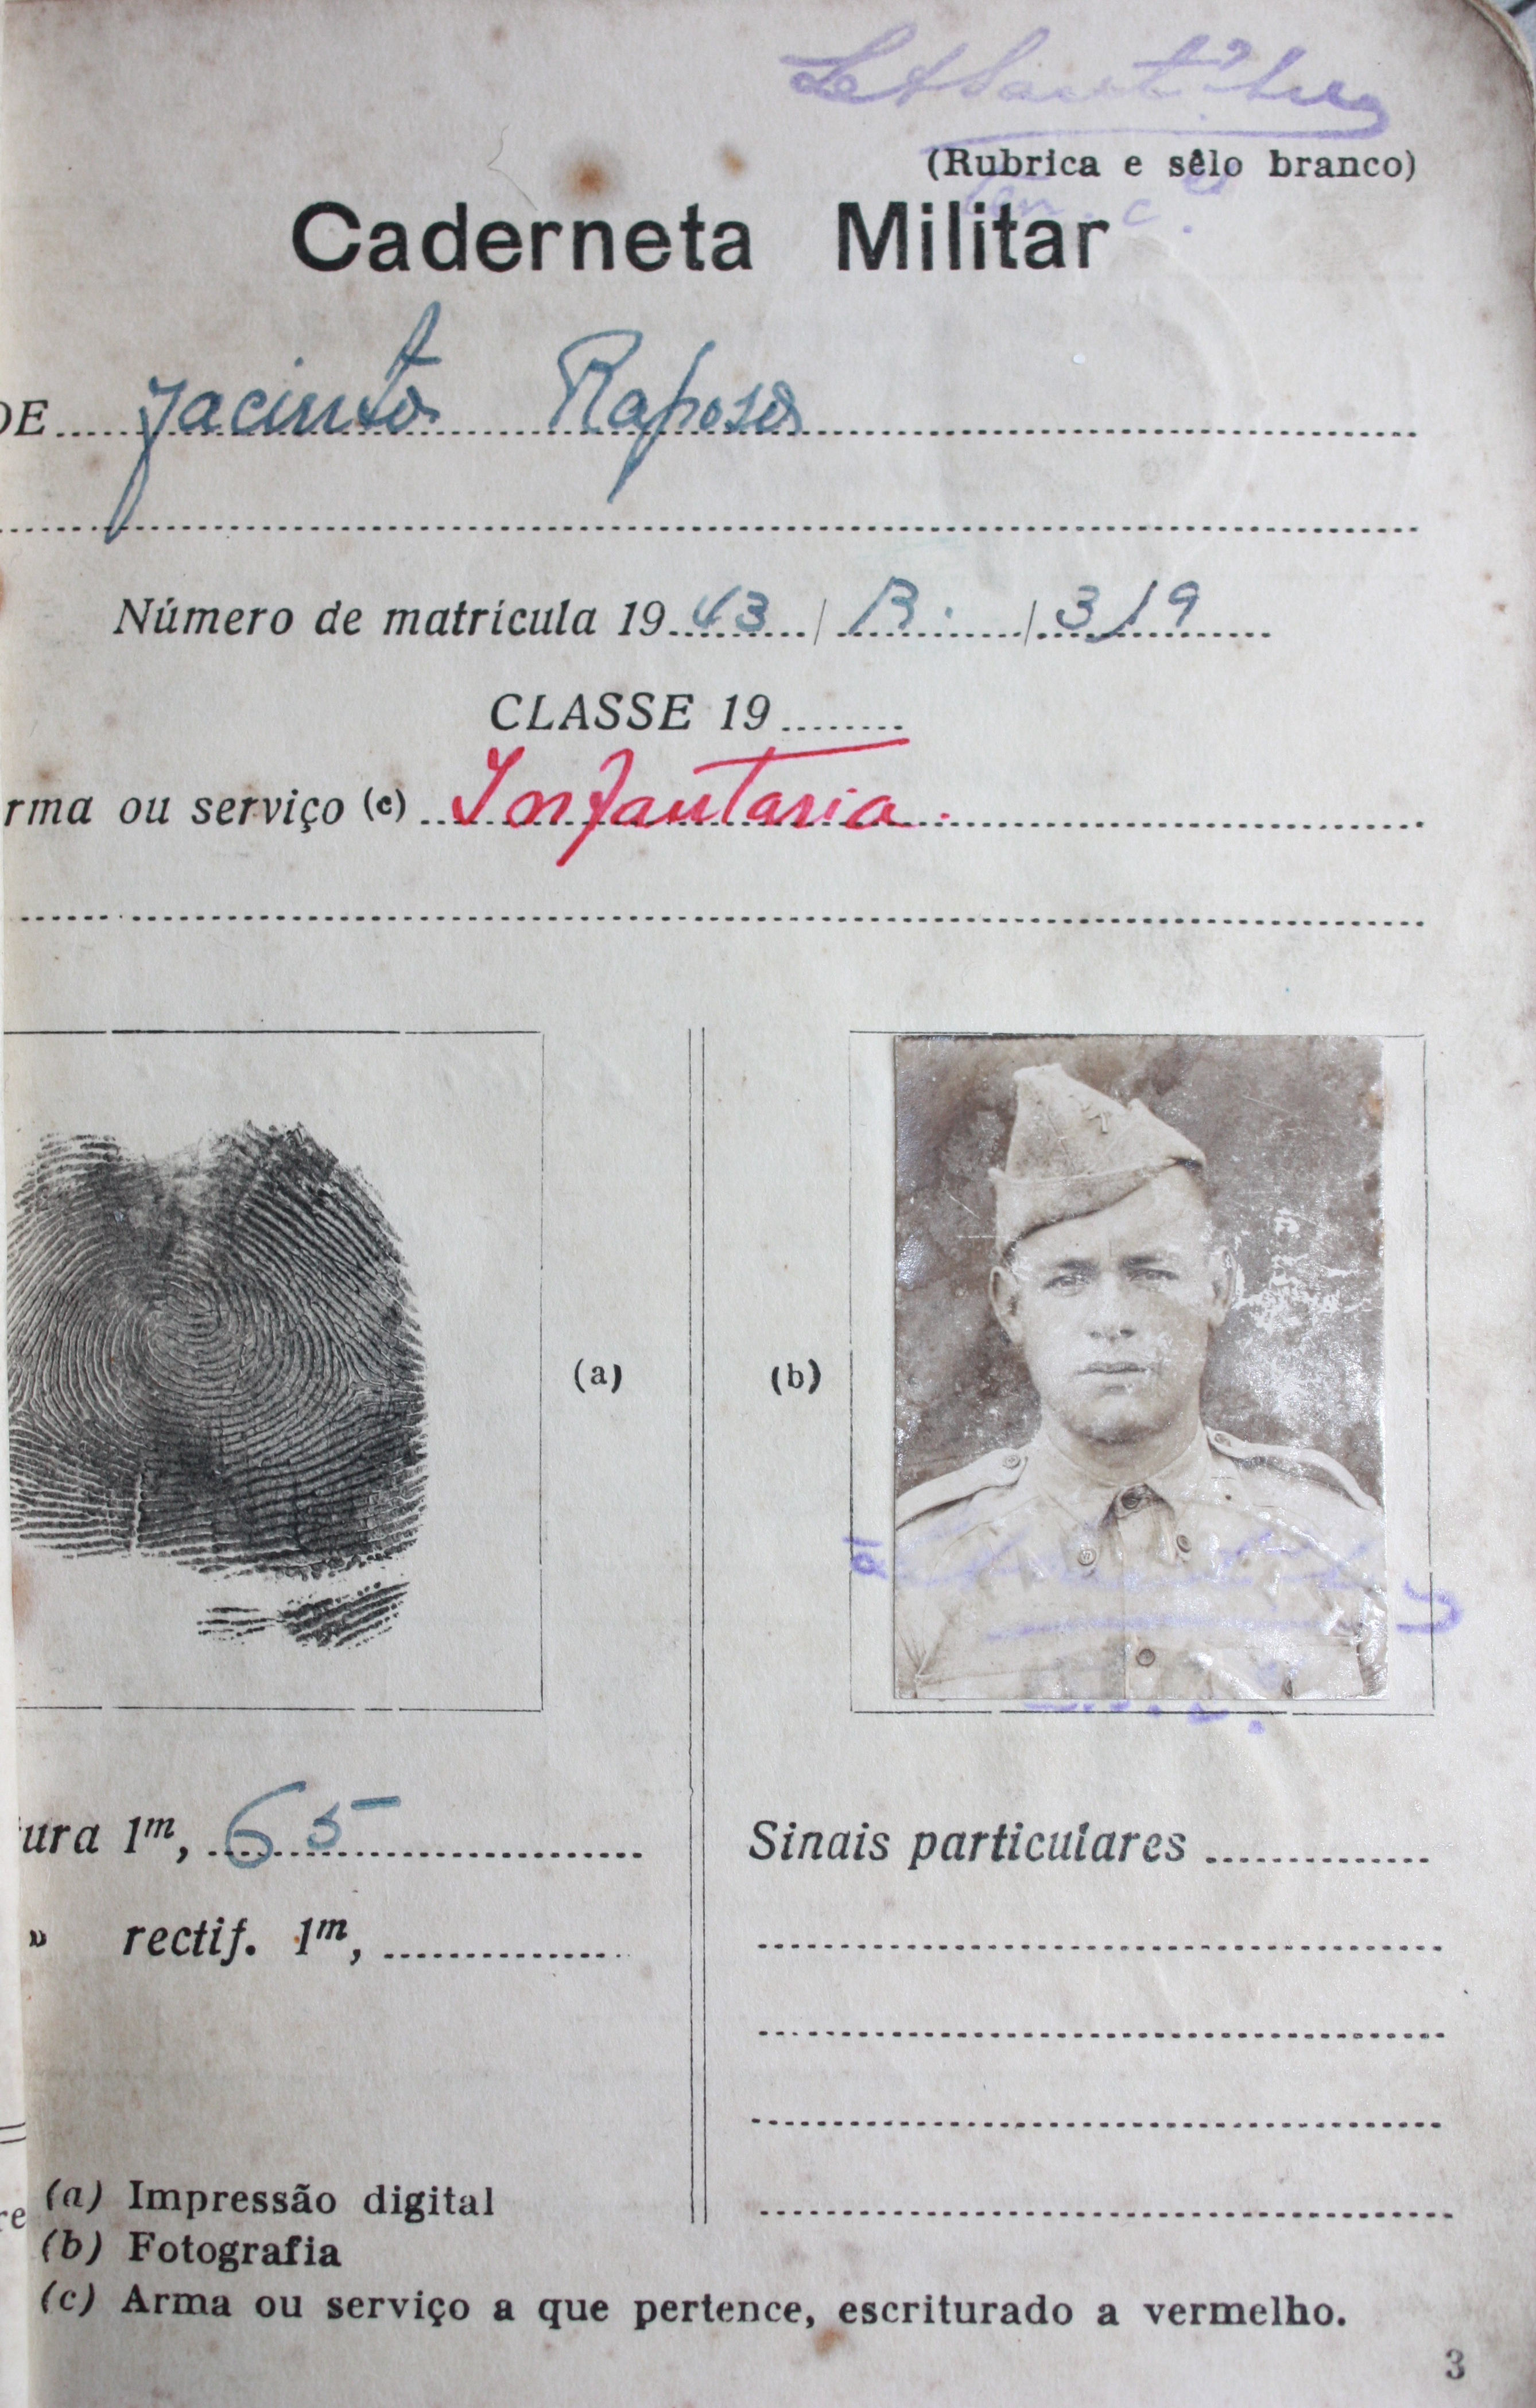 (Rubrica e sêlo branco)
Caderneta Militar
DE Jacinto Raposo
Número de matrícula 1943 / B. / 319
CLASSE 19
rma ou serviço (c) Infantaria.
(a)
(b)
tura 1m, 65
» rectif. 1m,
Sinais particulares
re
(a) Impressão digital
(b) Fotografia
(c) Arma ou serviço a que pertence, escriturado a vermelho.
3